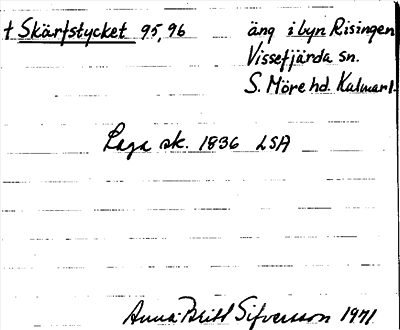 † Skärfstycket 95,96 äng i byn Risingen
Vissefjärda sn.
S. Möre hd. Kalmar l.
Laga sk. 1836 LSA
Anna-Britt Sifversson 1971